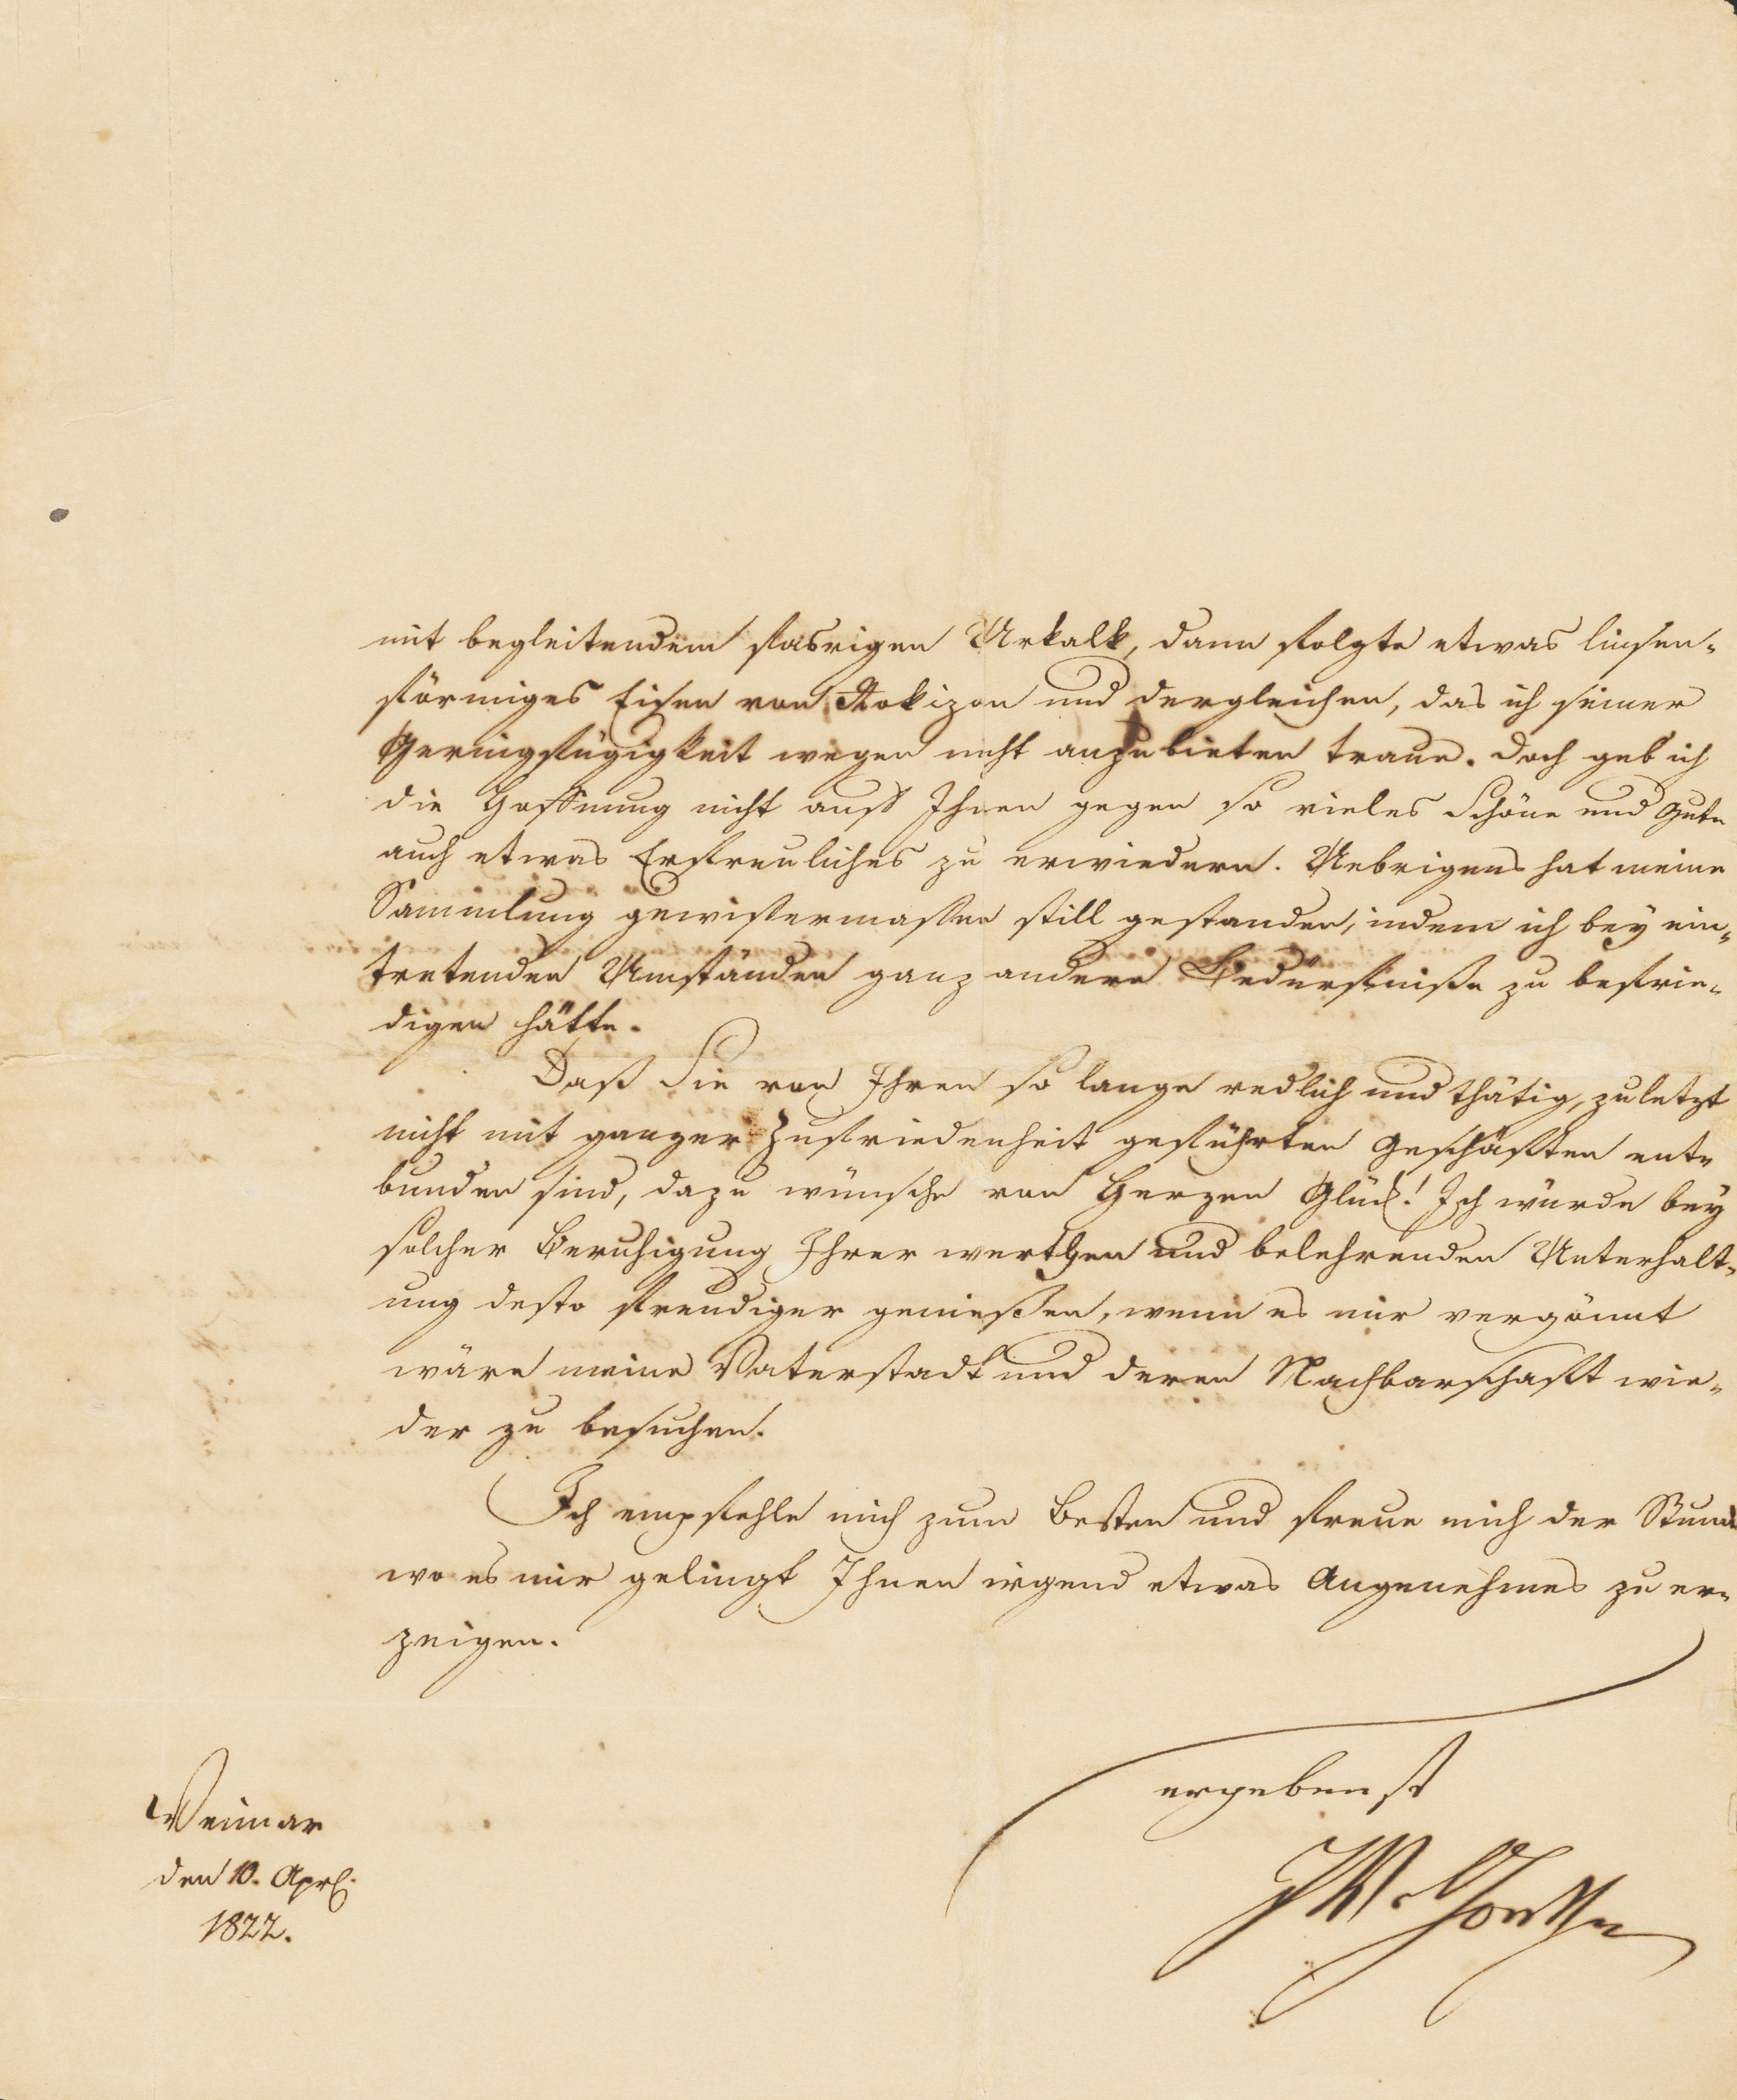 mit begleitendem fasrigen Urkalk, dann folgte etwas linsen-
förmiges Eisen von Rokizon und dergleichen, das ich seiner
Geringfügigkeit wegen nicht anzubieten traue. Doch geb ich
die Hoffnung nicht auf Ihnen gegen so vieles Schöne und Gute
auch etwas Erfreuliches zu erwiedern. Uebrigens hat meine
Sammlung gewissermassen still gestanden, indem ich bey ein-
tretenden Umständen ganz andere Bedürfnisse zu befrie-
digen hätte.
Daß Sie von Ihren so lange redlich und thätig, zuletzt
nicht mit ganzer Zufriedenheit geführten Geschäften ent-
bunden sind, dazu wünsche von Herzen Glück! Ich würde bey
solcher Beruhigung Ihrer werthen und belehrenden Unterhalt-
ung desto freudiger genießen, wenn es mir vergönnt
wäre meine Vaterstadt und deren Nachbarschaft wie-
der zu besuchen.
Ich empfehle mich zum Besten und freue mich der Stunde
wo es mir gelingt Ihnen irgend etwas Angenehmes zu er-
zeigen.
ergebenst
JW. Goethe
Weimar
den 10. Aprl.
1822.